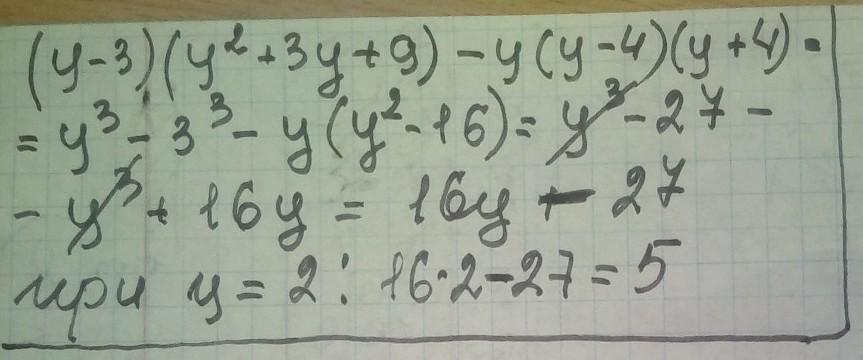 (y-3)(y²+3y+9)-y(y-4)(y+4)=
=y³-3³-y(y²-16)=y³-27-
-y³+16y=16y-27
при y=2: 16·2-27=5